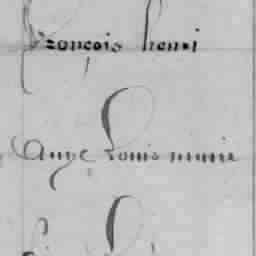 françois henri
Ange Louis marie